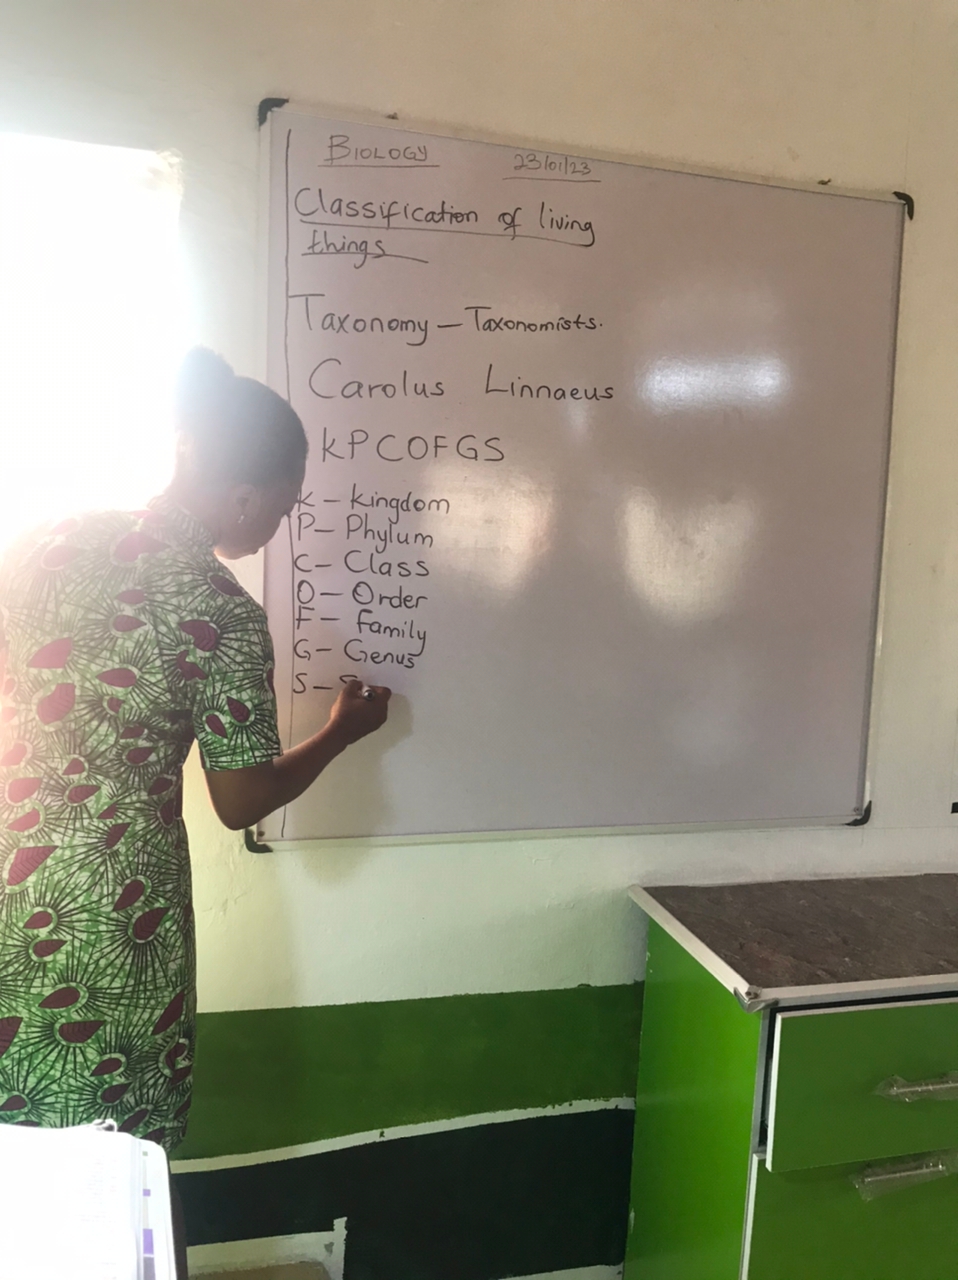 BIOLOGY 23/01/23
Classification of living
things
Taxonomy – Taxonomists.
Carolus Linnaeus
KPCOFGS
K – Kingdom
P – Phylum
C – Class
O – Order
F – family
G – Genus
S – S